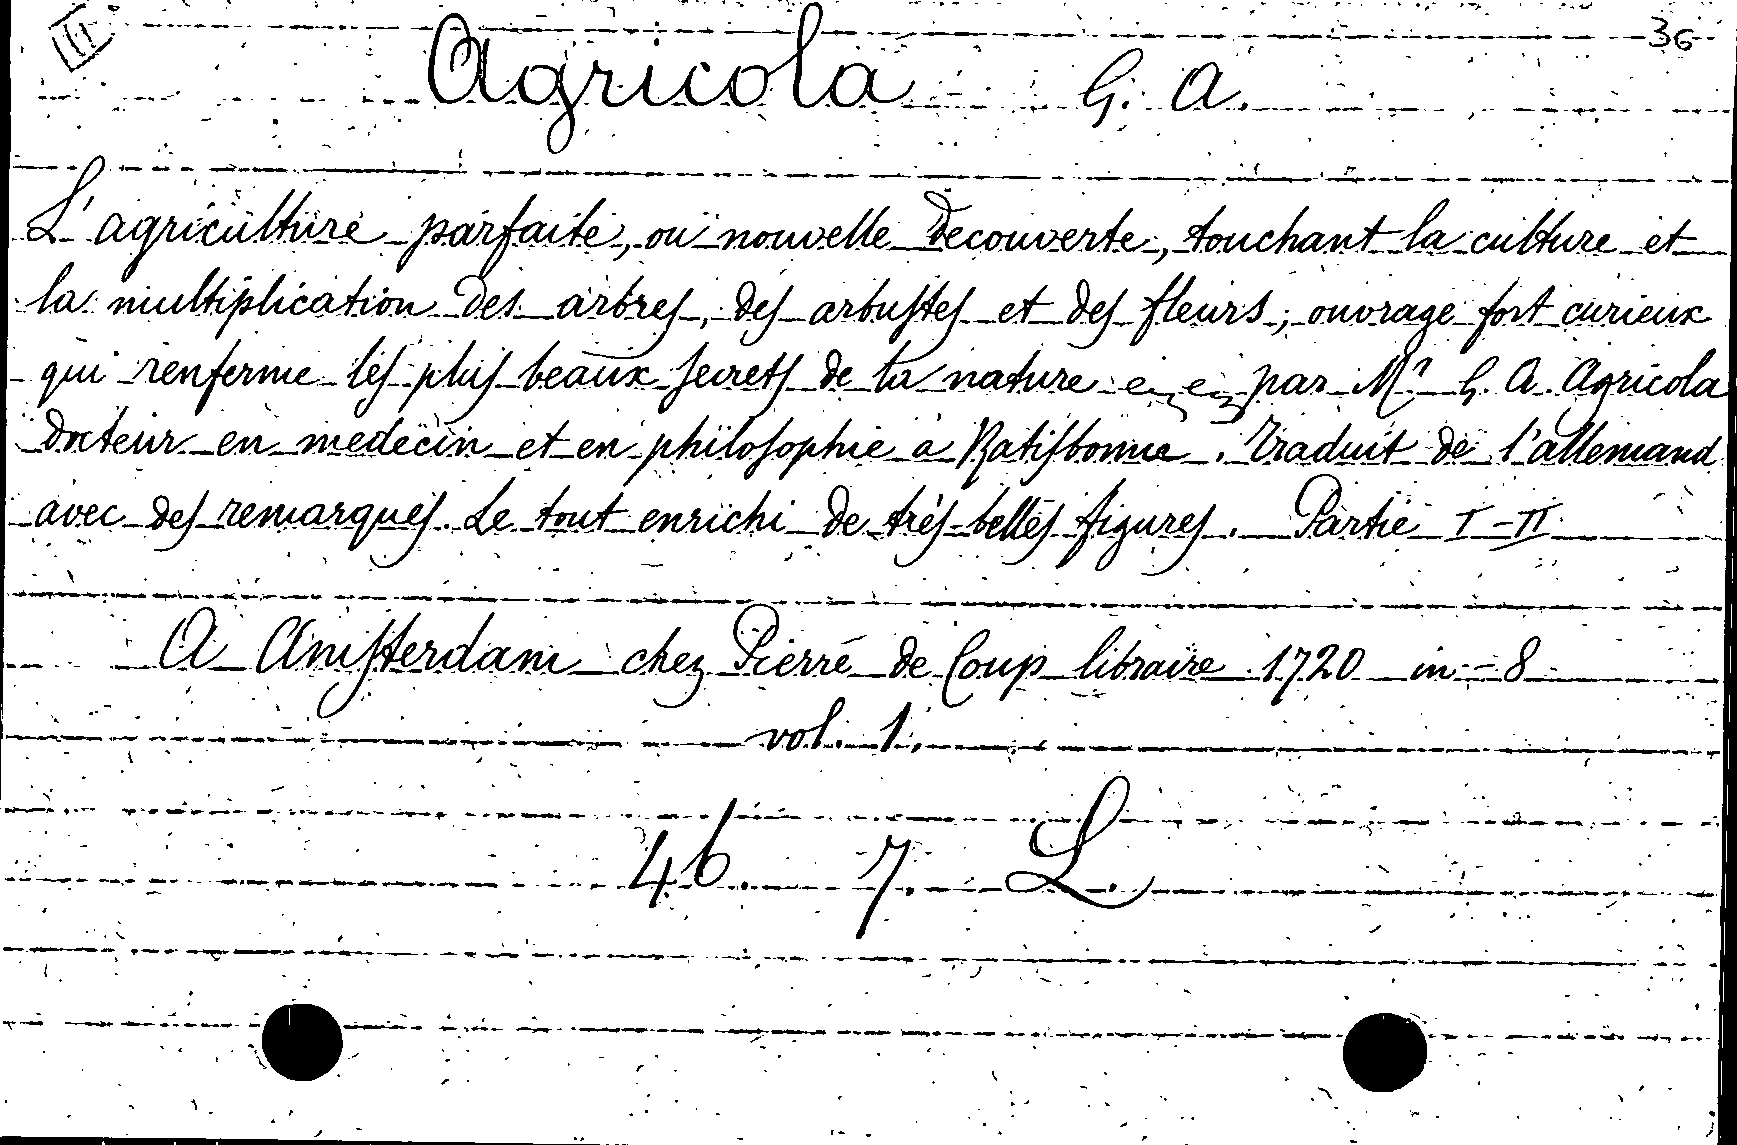 III 36
Agricola G. A.
L'agriculture parfaite, ou nouvelle decouverte, touchant la culture et
la multiplication des arbres, des arbustes et des fleurs; ouvrage fort curieux
qui renferme les plus beaux secrets de la nature par Mr G. A. Agricola
docteur en medecin et en philosophie à Ratisbonne. Traduit de l'allemand
avec des remarques. Le tout enrichi de très-belles figures. Partie I-II
A Amsterdam chez Pierre de Coup libraire 1720 in-8
vol. 1.
46. 7. L.